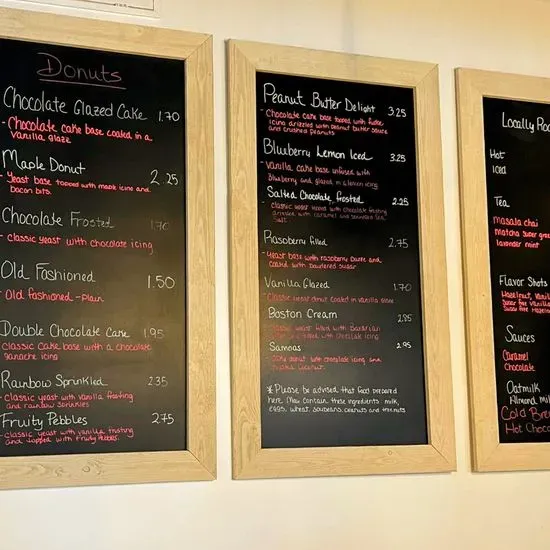 Donuts
Chocolate Glazed Cake 1.70
- Chocolate cake base coated in a
vanilla glaze
Maple Donut 2.25
- Yeast base topped with maple icing and
bacon bits.
Chocolate Frosted 1.70
- Classic yeast with chocolate icing
Old Fashioned 1.50
- Old Fashioned - Plain
Double Chocolate Cake 1.95
Classic Cake base with a chocolate
ganache icing
Rainbow Sprinkled 2.35
- Classic yeast with vanilla frosting
and rainbow sprinkles
Fruity Pebbles 2.75
- Classic yeast with vanilla frosting
and topped with Fruity Pebbles.
Peanut Butter Delight 3.25
- Chocolate cake base topped with fudge
icing drizzled with peanut butter sauce
and crushed peanuts
Blueberry Lemon Iced 3.25
- Vanilla cake base infused with
Blueberry and glazed in lemon icing
Salted Chocolate frosted 2.25
classic yeast topped with chocolate frosting
drizzled with caramel and
Salt
Raspberry filled 2.75
- Yeast base with raspberry puree and
coated with powdered sugar
Vanilla Glazed 1.70
- Classic yeast donut coated in vanilla glaze
Boston Cream 2.85
- Classic yeast filled with Bavarian
and filled with chocolate icing
Samoas 2.95
- Cake donut with chocolate icing and
coconut.
* Please be advised that food prepared
here may contain these ingredients: milk,
eggs, wheat, soybeans, peanuts and tree nuts
Locally Roa
Hot
Iced
Tea
masala chai
matcha super gre
lavender mint
Flavor Shots
Hazelnut, Vanilla
Sugar free vanilla
Sugar free Hazeln
Sauces
Caramel
Chocolate
Oatmilk
Almond mil
Cold Bre
Hot Choco